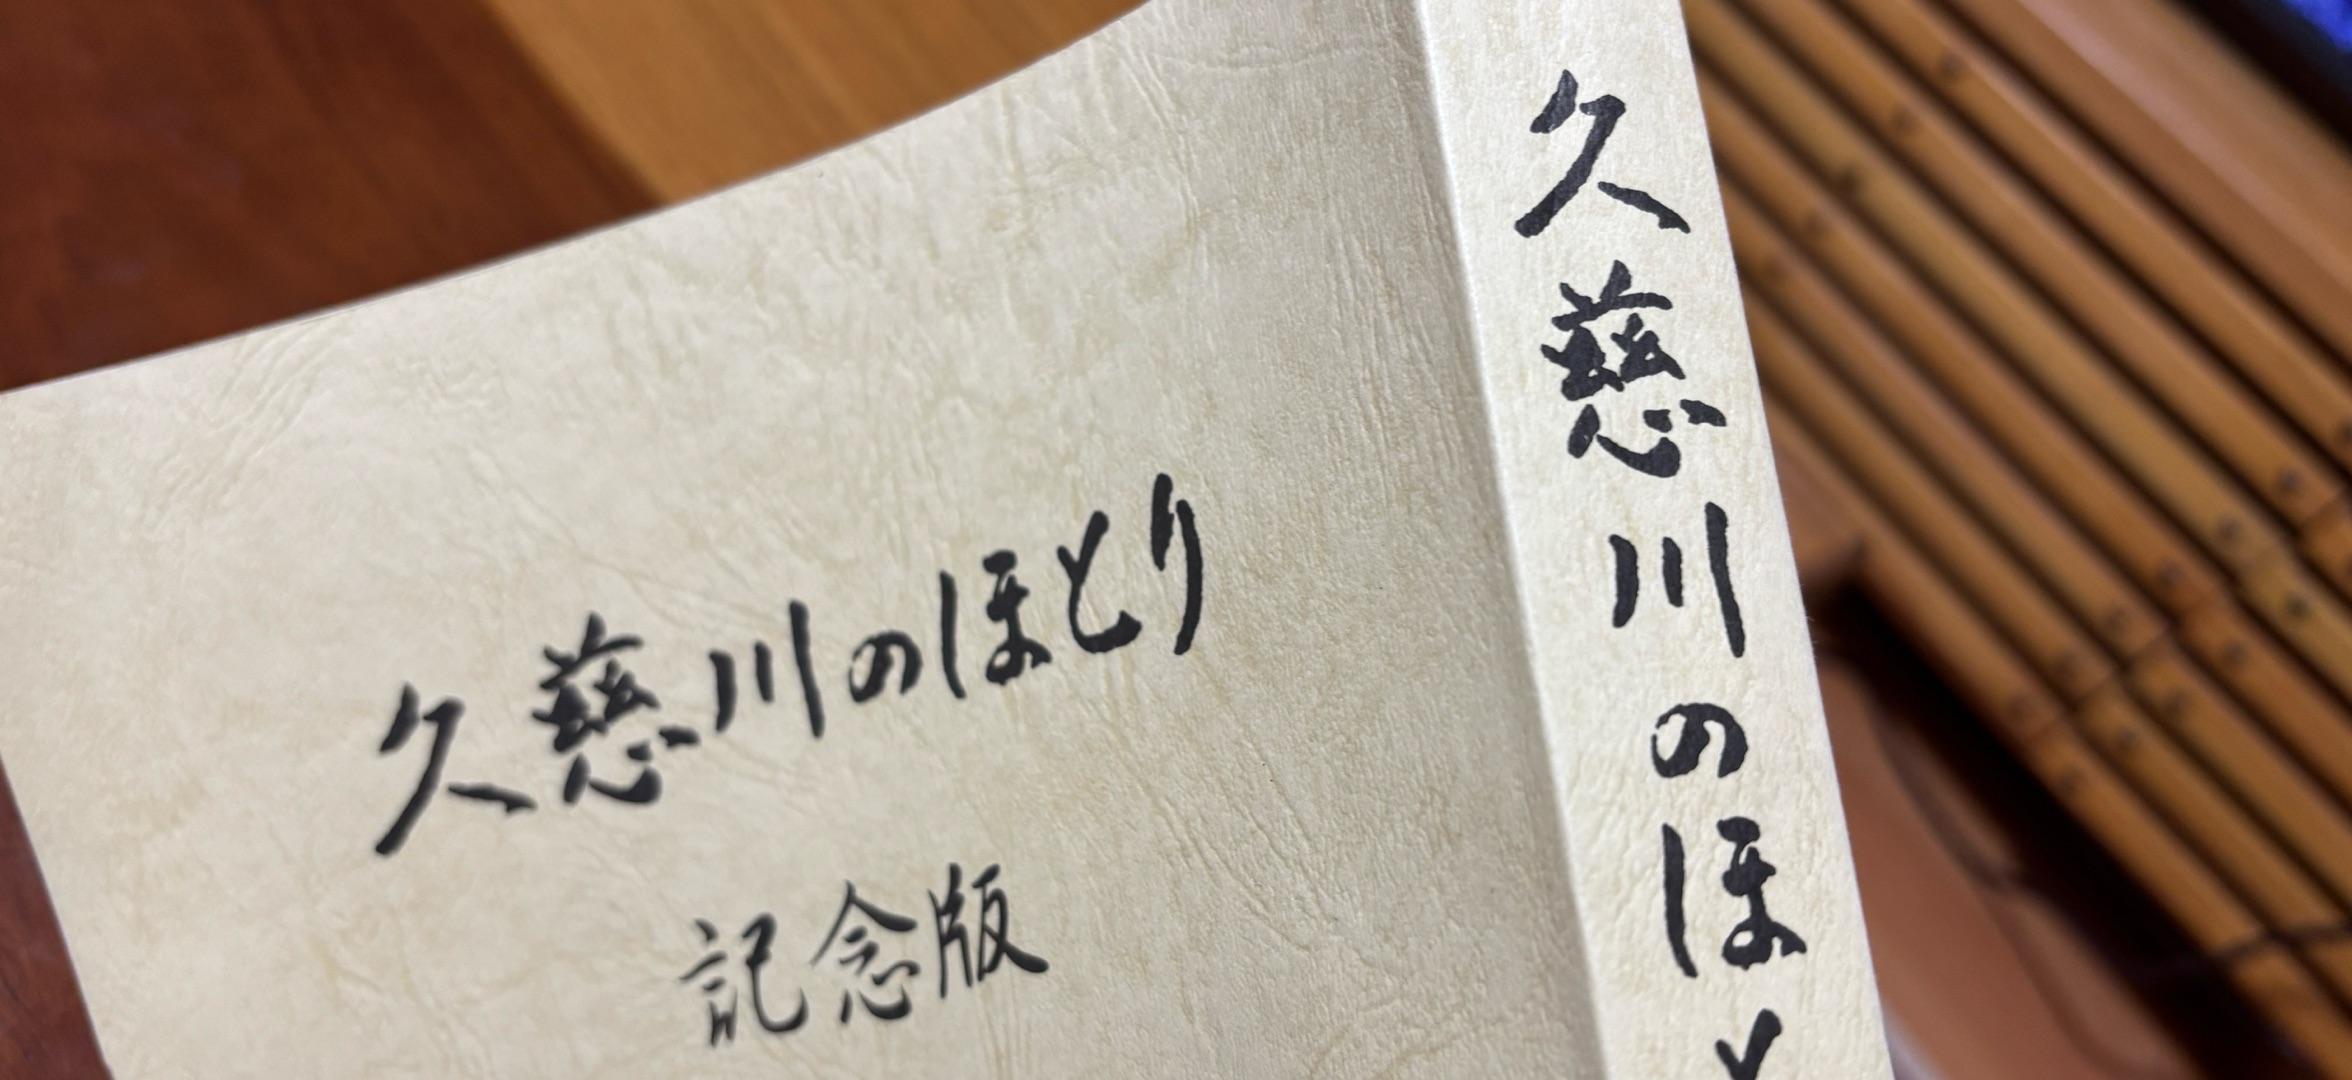 久慈川のほとり
記念版
久慈川のほと